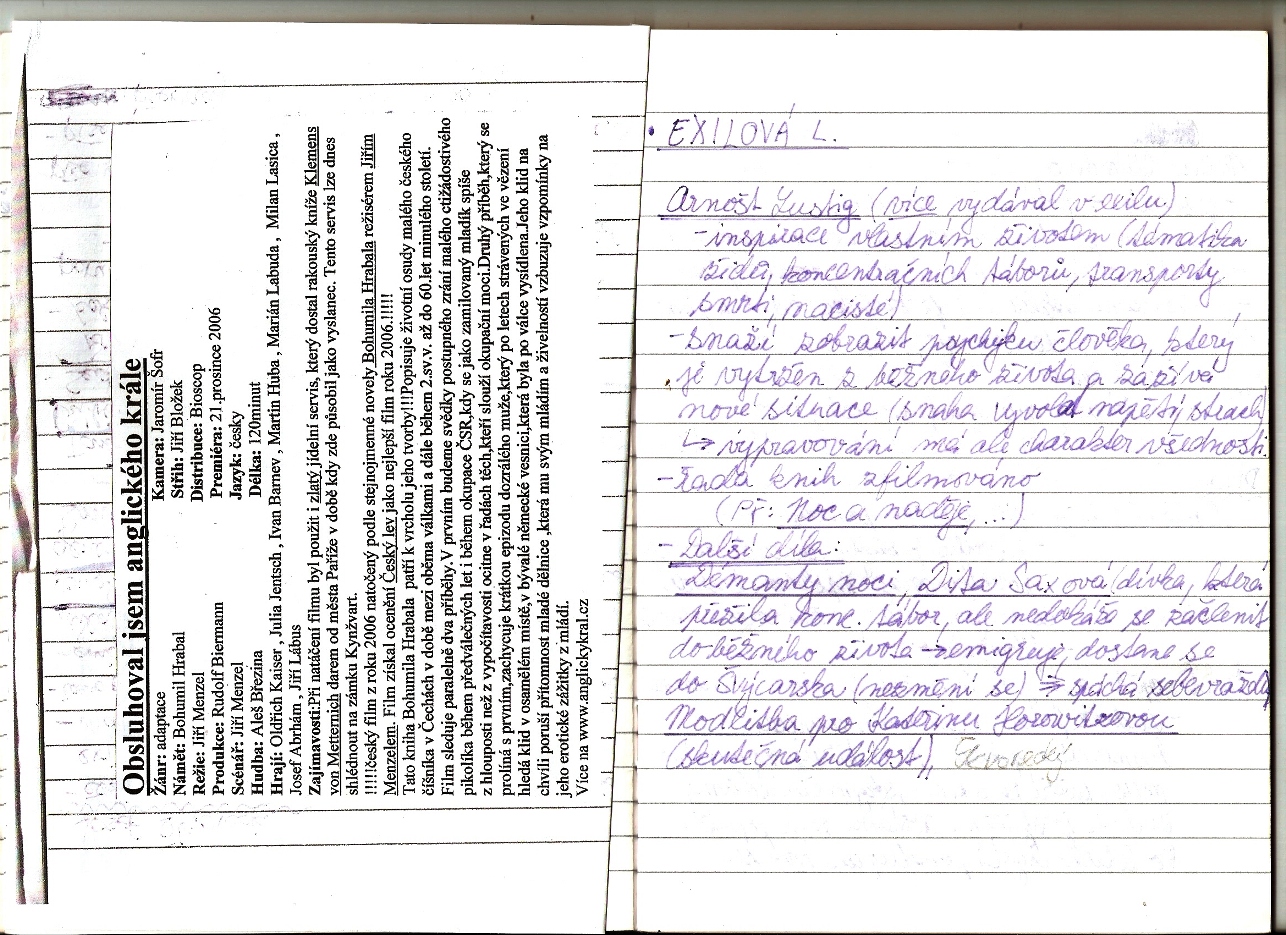 Obsluhoval jsem anglického krále
Žánr: adaptace
Kamera: Jaromír Šofr
Námět: Bohumil Hrabal
Střih: Jiří Bložek
Režie: Jiří Menzel
Distribuce: Bioscop
Produkce: Rudolf Biermann
Premiéra: 21.prosince 2006
Scénář: Jiří Menzel
Jazyk: český
Hudba: Aleš Březina
Délka: 120minut
Hrají: Oldřich Kaiser , Julia Jentsch , Ivan Barnev , Martin Huba , Marián Labuda , Milan Lasica ,
Josef Abrhám , Jiří Lábus
Zajímavosti:Při natáčení filmu byl použit i zlatý jídelní servis, který dostal rakouský kníže Klemens
von Metternich darem od města Paříže v době kdy zde působil jako vyslanec. Tento servis lze dnes
shlédnout na zámku Kynžvart.
!!!!český film z roku 2006 natočený podle stejnojmenné novely Bohumila Hrabala režisérem Jiřím
Menzelem. Film získal ocenění Český lev jako nejlepší film roku 2006.!!!!!
Tato kniha Bohumila Hrabala patří k vrcholu jeho tvorby!!!Popisuje životní osudy malého českého
číšníka v Čechách v době mezi oběma válkami a dále během 2.sv.v. až do 60.let minulého století.
Film sleduje paralelně dva příběhy.V prvním budeme svědky postupného zrání malého ctižádostivého
pikolíka během předválečných let i během okupace ČSR,kdy se jako zamilovaný mladík spíše
z hlouposti než z vypočítavosti ocitne v řadách těch,kteří slouží okupační moci.Druhý příběh,který se
prolíná s prvním,zachycuje krátkou epizodu dozrálého muže,který po letech strávených ve vězení
hledá klid v osamělém místě,v bývalé německé vesnici,která byla po válce vysídlena.Jeho klid na
chvíli poruší přítomnost mladé dělnice ,která mu svým mládím a živelností vzbuzuje vzpomínky na
jeho erotické zážitky z mládí.
Více na www.anglickykral.cz
• EXILOVÁ L.
Arnošt Lustig (více vydával v exilu)
-inspirace vlastním životem (tématika
židů, koncentračních táborů, transporty
smrti, nacisté)
-snaží zobrazit psychiku člověka, který
je vytržen z běžného života a zažívá
nové situace (snaha vyvolat napětí, strach)
↳ vypravování má ale charakter všednosti
-řada knih zfilmováno
(Př: Noc a naděje, ...)
-Další díla:
Démanty noci, Dita Saxová (dívka, která
přežila konc. tábor, ale nedokáže se začlenit
do běžného života → emigruje, dostane se
do Švýcarska (nezmění se) ⇒ spáchá sebevraždu)
Modlitba pro Kateřinu Horowitzovou
(skutečná událost), Škvorecký